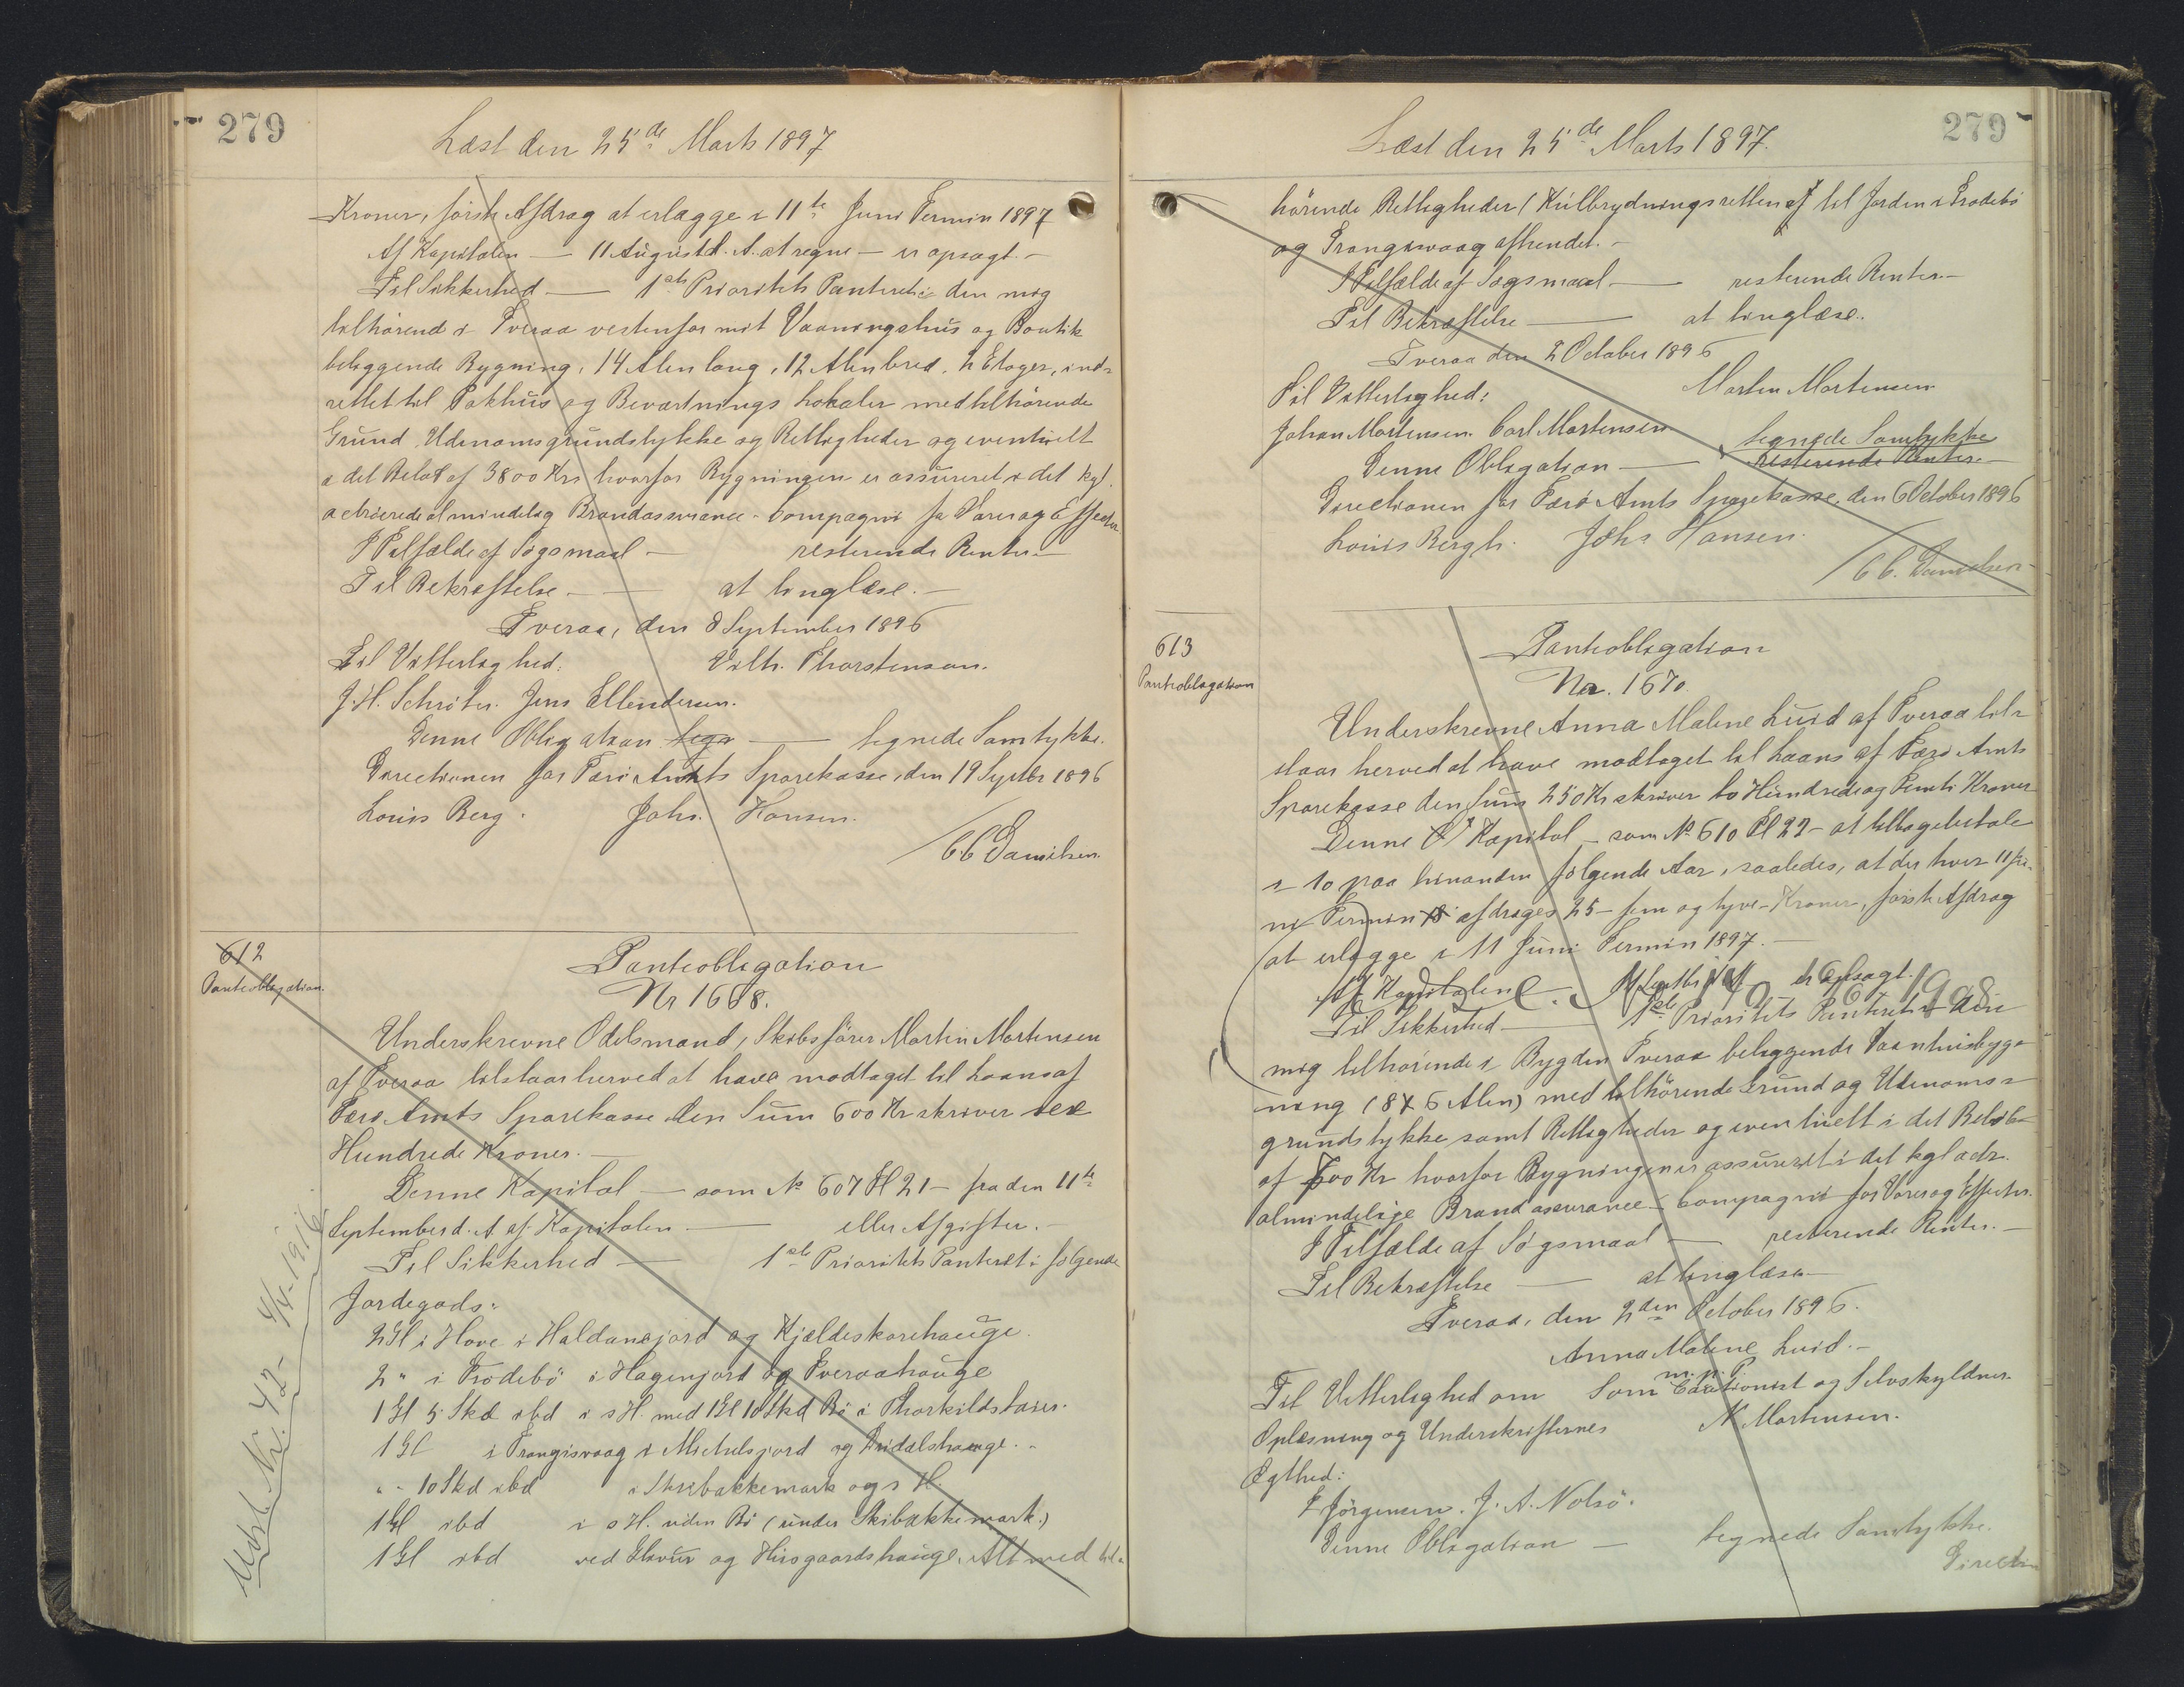 279
Læst den 25de Marts 1897
Kroner, første Afdrag at erlægge i 11te Juni Termin 1897
Af Kapitalen — 11 August d. A. at regne — er opsagt. —
Til Sikkerhed — 1ste Prioritets Panteret i den mig
tilhörende i Tveraa vestenfor mit Vaaningshus og Boutik
beliggende Bygning, 14 Alen lang, 12 Alen bred, 2 Etager, ind-
rettet til Pakhus og Beværtnings Lokaler med tilhörende
Grund Udenomsgrundstykke og Rettigheder og eventuelt
i det Belöb af 3800 Krs hvorfor Bygningen er assureret i det kgl.
octroierede almindelig Brandassurance-Compagni for Varer og Effecter
I Tilfælde af Søgsmaal — resterende Renter. —
Til Bekræftelse — — at tinglæse. —
Tveraa, den 8 September 1896
Til Vitterlighed: Vilh. Thorstensen.
J. H. Schröter. Jens Ellendersen.
Denne Obligation — tegnede Samtykke.
Directionen for Færö Amts Sparekasse, den 19 Septbr 1896
Louis Berg. Johs. Hansen.
/ C C Danielsen.
612
Panteobligation.
Panteobligation
Nr 1668.
Underskrevne Odelsmand, Skibsförer Martin Mortensen
af Tveraa tilstaar herved at have modtaget til Laans af
Færö Amts Sparekasse den Sum 600 Kr skriver sex
Hundrede Kroner. —
Denne Kapital — som No 607 Pl 21 — fra den 11te
September d. A. af Kapitalen — eller Afgifter. —
Til Sikkerhed — 1ste Prioritets Panteret i fölgende
Jordegods:
2 Gl i Hove i Haldansjord og Kjældeskorehauge.
2 " i Trödebö i Hagenjord og Tveraahauge
1 Gl 5 Skd ibd i s H. med 1 Gl 10 Skd Bö i Thorkildshaier.
1 Gl i Trangisvaag i Michelsjord og Lridalshauge. "
" " 10 Skd ibd i Skibakkemark og s H.
1 Gl ibd i s H. uden Bö (under Skibakkemark.)
1 Gl ibd ved Glovur og Hirsgaardshauge. Alt med til-
Udsl. Nr. 42- 4/4-1916
279
Læst den 25de Marts 1897.
hörende Rettigheder (Kulbrydningsretten til Jorden i Trodebö
og Trangisvaag afhendet. —
I Tilfælde af Sagsmaal — resterende Renter. —
Til Bekræftelse — at tinglæse.
Tveraa den 2 October 1896
Til Vitterlighed: Martin Mortensen
Johan Mortensen. Carl Mortensen
Denne Obligation — tegnede Samtykke
resterende Renter. —
Directionen for Færö Amts Sparekasse, den 6 October 1896
Louis Bergh. Johs Hansen.
/ C C. Danielsen.
613
Panteobligation
Panteobligation
Nr. 1670.
Underskrevne Anna Malene Luid af Tveraa til-
staar herved at have modtaget til Laans af Færö Amts
Sparekasse den Sum 250 Kr skriver to Hundrede og Femti Kroner
Denne Kapital — som No 610 Pl 22 — at tilbagebetale
i 10 paa hinanden fölgende Aar, saaledes, at der hver 11 Ju-
ni Termin afdrages 25 — fem og tyve — Kroner, förste Afdrag
at erlægge i 11 Juni Termin 1897. —
Af Kapitalen er opsagt.
1908
Til Sikkerhed — 1ste Prioritets Panteret i den
mig tilhörende i Bygden Tveraa beliggende Vaanhusbyg-
ning (8 X 6 Alen) med tilhörende Grund og Udenoms-
grundstykke samt Rettigheder og eventuelt i det Belöb
af 600 Kr hvorfor Bygningen er assureret i det kgl octr.
almindelige Brandassurance-Compagni for Varer og Effecter.
I Tilfælde af Søgsmaal — resterende Renter. —
Til Bekræftelse — at tinglæse —
Tveraa, den 2den October 1896.
Anna Malene Luid. —
m. p. P.
Til Vitterlighed om Som Cautionist og Selvskyldner
Oplæsning og Underskrifternes N Mortensen.
Ægthed:
E Jörgensen. J. A. Nolsö.
Denne Obligation — tegnede Samtykke.
Direction